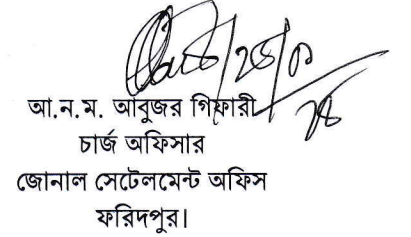 আ.ন.ম. আবুজর গিফারী
চার্জ অফিসার
জোনাল সেটেলমেন্ট অফিস
ফরিদপুর।